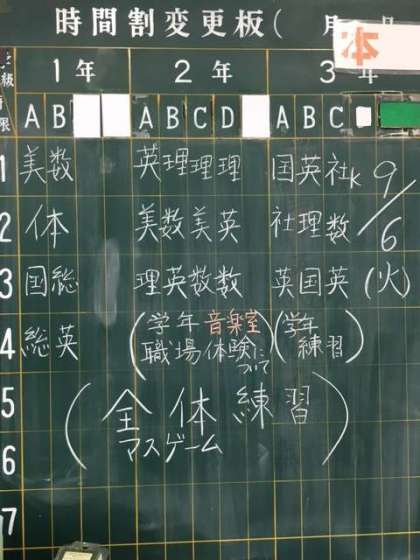 時間割変更板( 月 日
本
1年 2年 3年
級 AB ABCD ABC
限
1 美数 英理理理 国英社K 9/6
2 体 美数美英 社理数
3 国総 理英数数 英国英 (火)
4 総英 (学年 音楽室 職場体験について) (学年練習)
5 (全体練習
6 マスゲーム)
7